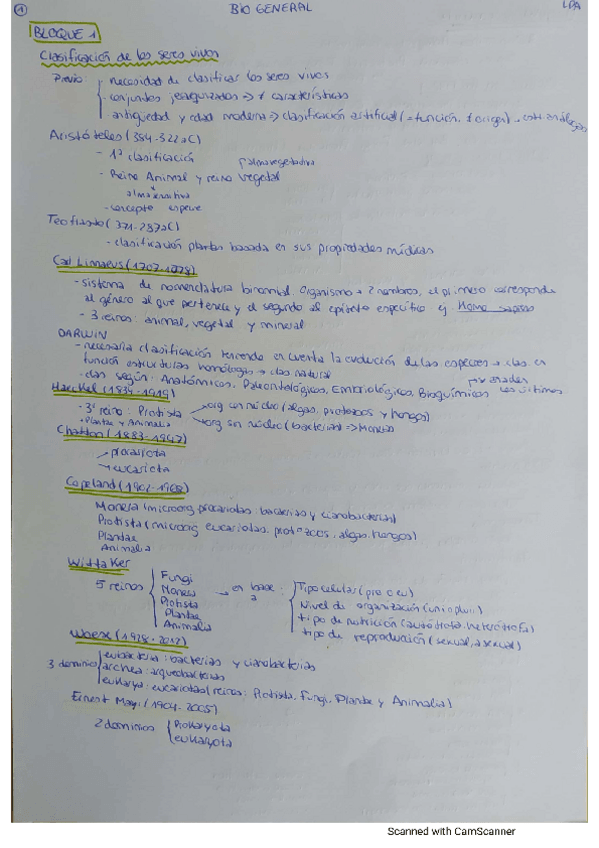 1 BIO GENERAL LPA
BLOQUE 1
Clasificación de los seres vivos
Previo: · necesidad de clasificar los seres vivos
· conjuntos jerarquizados => ≠ características
· antigüedad y edad moderna => clasificación artificial (= función, ≠ origen)
Aristóteles (384-322aC)
- 1ª clasificación
- Reino Animal y reino vegetal
alma vegetativa
alma sensitiva
- concepto especie
Teofrasto (371-287aC)
- clasificación plantas basada en sus propiedades médicas
Carl Linnaeus (1707-1778)
- sistema de nomenclatura binomial. Organismo → 2 nombres, el primero corresponde
al género al que pertenece y el segundo al epíteto específico ej Homo sapiens
- 3 reinos: animal, vegetal y mineral
DARWIN
- necesaria clasificación teniendo en cuenta la evolución de las especies → clas. en
función estructuras homólogas → clas. natural
- clas según: Anatómicos, Paleontológicos, Embriológicos, Bioquímicos
Haeckel (1834-1919)
- 3º reino: Protista → org con núcleo (algas, protozoos y hongos)
+ Plantae y Animalia → org sin núcleo (bacterias) => Moneras
Chatton (1883-1947)
→ procariota
→ eucariota
Copeland (1902-1968)
Monera (microorg procariotas: bacterias y cianobacterias)
Protista (microorg eucariotas. protozoos, algas, hongos)
Plantae
Animalia
Wittaker
5 reinos Fungi
Monera
Protista
Plantae
Animalia
→ en base a:
Tipo celular (pro o eu)
Nivel de organización (uni o pluri)
tipo de nutrición (autótrofa, heterótrofa)
tipo de reproducción (sexual, asexual)
Woese (1928-2012)
3 dominios eubacteria: bacterias y cianobacterias
archea: arqueobacterias
eukarya: eucariotas (reinos: Protista, Fungi, Plantae y Animalia)
Ernest Mayr (1904-2005)
2 dominios Prokaryota
eukaryota
Scanned with CamScanner